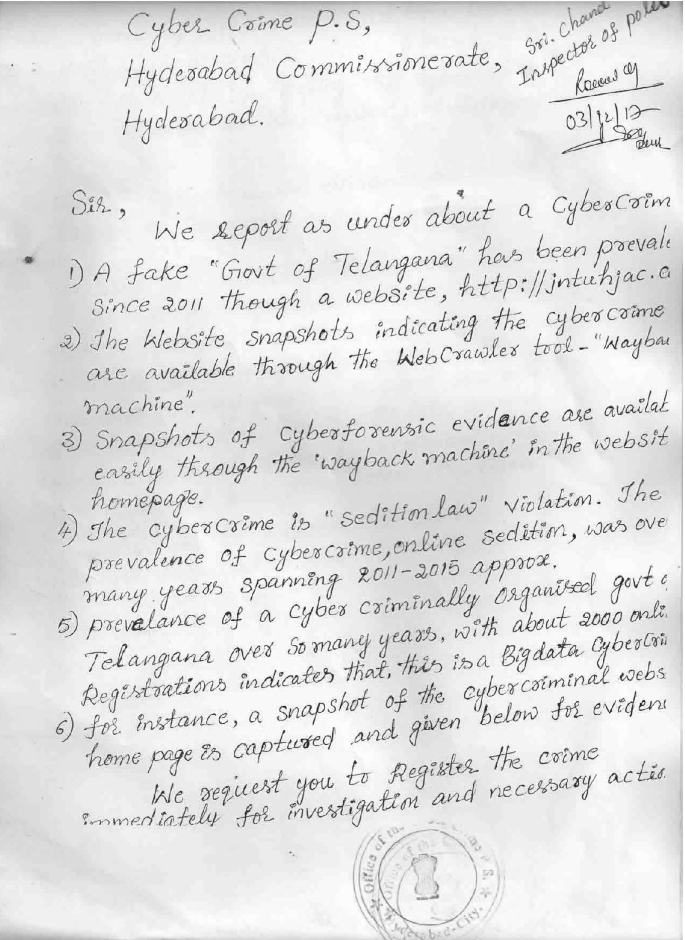 Cyber Crime P.S,
Hyderabad Commissionerate,
Hyderabad.
Sri. Chand
Inspector of police
03/12/17
Sir,
We report as under about a CyberCrim
1) A fake "Govt of Telangana" has been prevale
Since 2011 though a website, http://jntuhjac.c
2) The Website snapshots indicating the cybercrime
are available through the WebCrawler tool - "Waybac
machine".
3) Snapshots of cyberforensic evidence are availab
easily through the 'wayback machine' in the websit
homepage.
4) The cyberCrime is "sedition law" Violation. The
prevalence of cybercrime, online sedition, was ove
many years spanning 2011-2015 approx.
5) prevelance of a cyber criminally organised govt o
Telangana over so many years, with about 2000 onli
Registrations indicates that, this is a Bigdata CyberCri
6) for instance, a snapshot of the cybercriminal webs
home page is captured and given below for eviden
We request you to Register the crime
immediately for investigation and necessary actio
Office of the
Hyderabad-City.